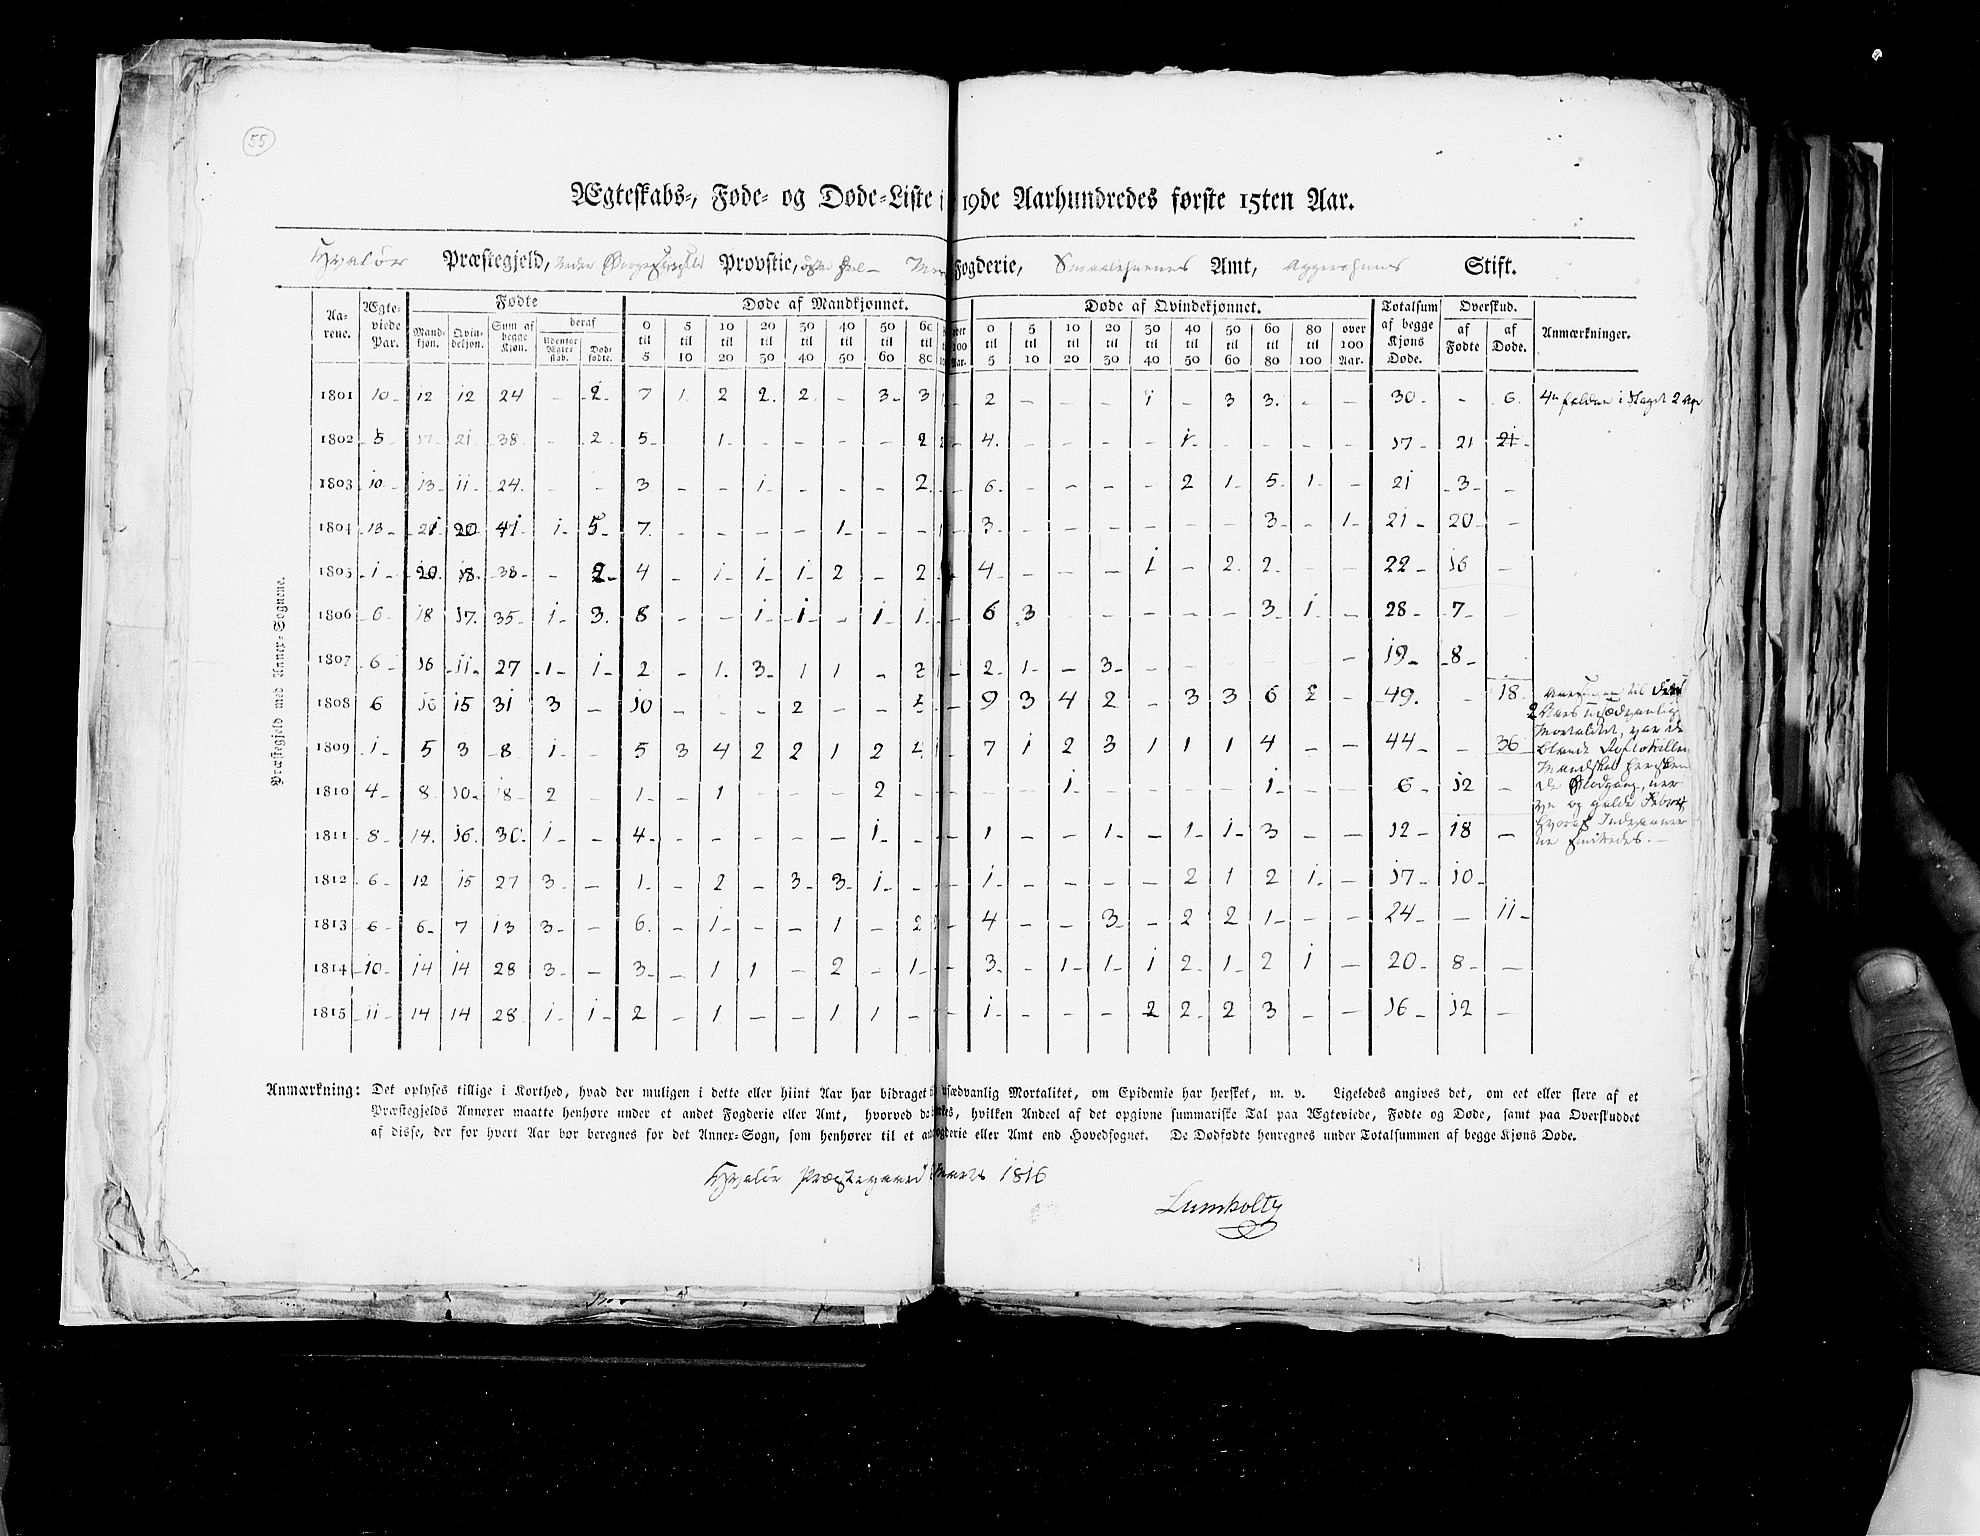 55
Ægteskabs-, Føde- og Døde-Liste i 19de Aarhundredes første 15ten Aar.
Hvaløer Præstegjeld, Provstie, Fogderie, Smaalehnenes Amt, Aggershuus Stift.
Præstegjeld med Annex-Sognene.
Aarene. Ægteviede Par. Fødte Døde af Mandkjønnet. Døde af Qvindekjønnet. Totalsum af begge Kjøns Døde. Overskud. Anmærkninger.
Mandkjøn. Qvindekjøn. Sum af begge Kjøn. deraf Udenfor Ægteskab. Dødfødte. 0 til 5 5 til 10 10 til 20 20 til 30 30 til 40 40 til 50 50 til 60 60 til 80 over 100 Aar. 0 til 5 5 til 10 10 til 20 20 til 30 30 til 40 40 til 50 50 til 60 60 til 80 80 til 100 over 100 Aar. af Fødte af Døde.
1801 10 12 12 24 - 2 7 1 2 2 2 - 3 3 2 - - - 1 - 3 3 - - 30 - 6 4re faldne i Slaget 2 Apr
1802 5 17 21 38 - 2 5 1 - - - - 2 4 - - - - 1 - - - - 17 21 21
1803 10 13 11 24 - - 3 - - 1 - - - 2 6 - - - - 2 1 5 1 - 21 3 -
1804 13 21 20 41 1 5 7 - - - - 1 - - 3 - - - - - - 3 - 1 21 20 -
1805 1 20 18 38 - 2 4 - 1 1 1 2 - 2 4 - - - 1 - 2 2 - - 22 16 -
1806 6 18 17 35 1 3 8 - - 1 1 - 1 1 6 3 - - - - - 3 1 - 28 7 -
1807 6 16 11 27 1 1 2 - 1 3 1 1 - 3 2 1 - 3 - - - - - - 19 8
1808 6 16 15 31 3 - 10 - - - 2 - - 5 9 3 4 2 - 3 3 6 2 - 49 - 18
1809 1 5 3 8 1 - 5 3 4 2 2 1 2 4 7 1 2 3 1 1 1 4 - - 44 - 36
1810 4 8 10 18 2 - 1 - 1 - - - 2 - - - 1 - - - - 1 - - 6 12 -
1811 8 14 16 30 1 - 4 - - - - - 1 - 1 - - 1 - 1 1 3 - - 12 18 -
1812 6 12 15 27 3 - 1 - 2 - 3 3 1 - 1 - - - - 2 1 2 1 - 17 10
1813 6 6 7 13 3 - 6 - 1 - - 1 - 2 4 - - 3 - 2 2 1 - - 24 - 11
1814 10 14 14 28 3 - 3 - 1 1 - 2 - 1 3 - 1 1 1 2 1 2 1 - 20 8 -
1815 11 14 14 28 1 1 2 - 1 - - 1 1 - 1 - - - 2 2 2 3 - - 16 12 -
Aarsagen til disse
2 Aars usædvanlig
Mortalitet, var de
blandt
Mandskab hersken
de Blodgang, ner
ve og gule Feber
hvoraf Indvaaner
ne smittedes.
Anmærkning: Det oplyses tillige i Korthed, hvad der muligen i dette eller hiint Aar har bidraget til usædvanlig Mortalitet, om Epidemie har hersket, m. v. Ligeledes angives det, om eet eller flere af et
Præstegjelds Annexer maatte henhøre under et andet Fogderie eller Amt, hvorved hvilken Andeel af det opgivne summariske Tal paa Ægteviede, Fødte og Døde, samt paa Overskuddet
af disse, der for hvert Aar bør beregnes for det Annex-Sogn, som henhører til et andet Fogderie eller Amt end Hovedsognet. De Dødfødte henregnes under Totalsummen af begge Kjøns Døde.
Hvaløe Præstegaard Marts 1816
Lumholtz